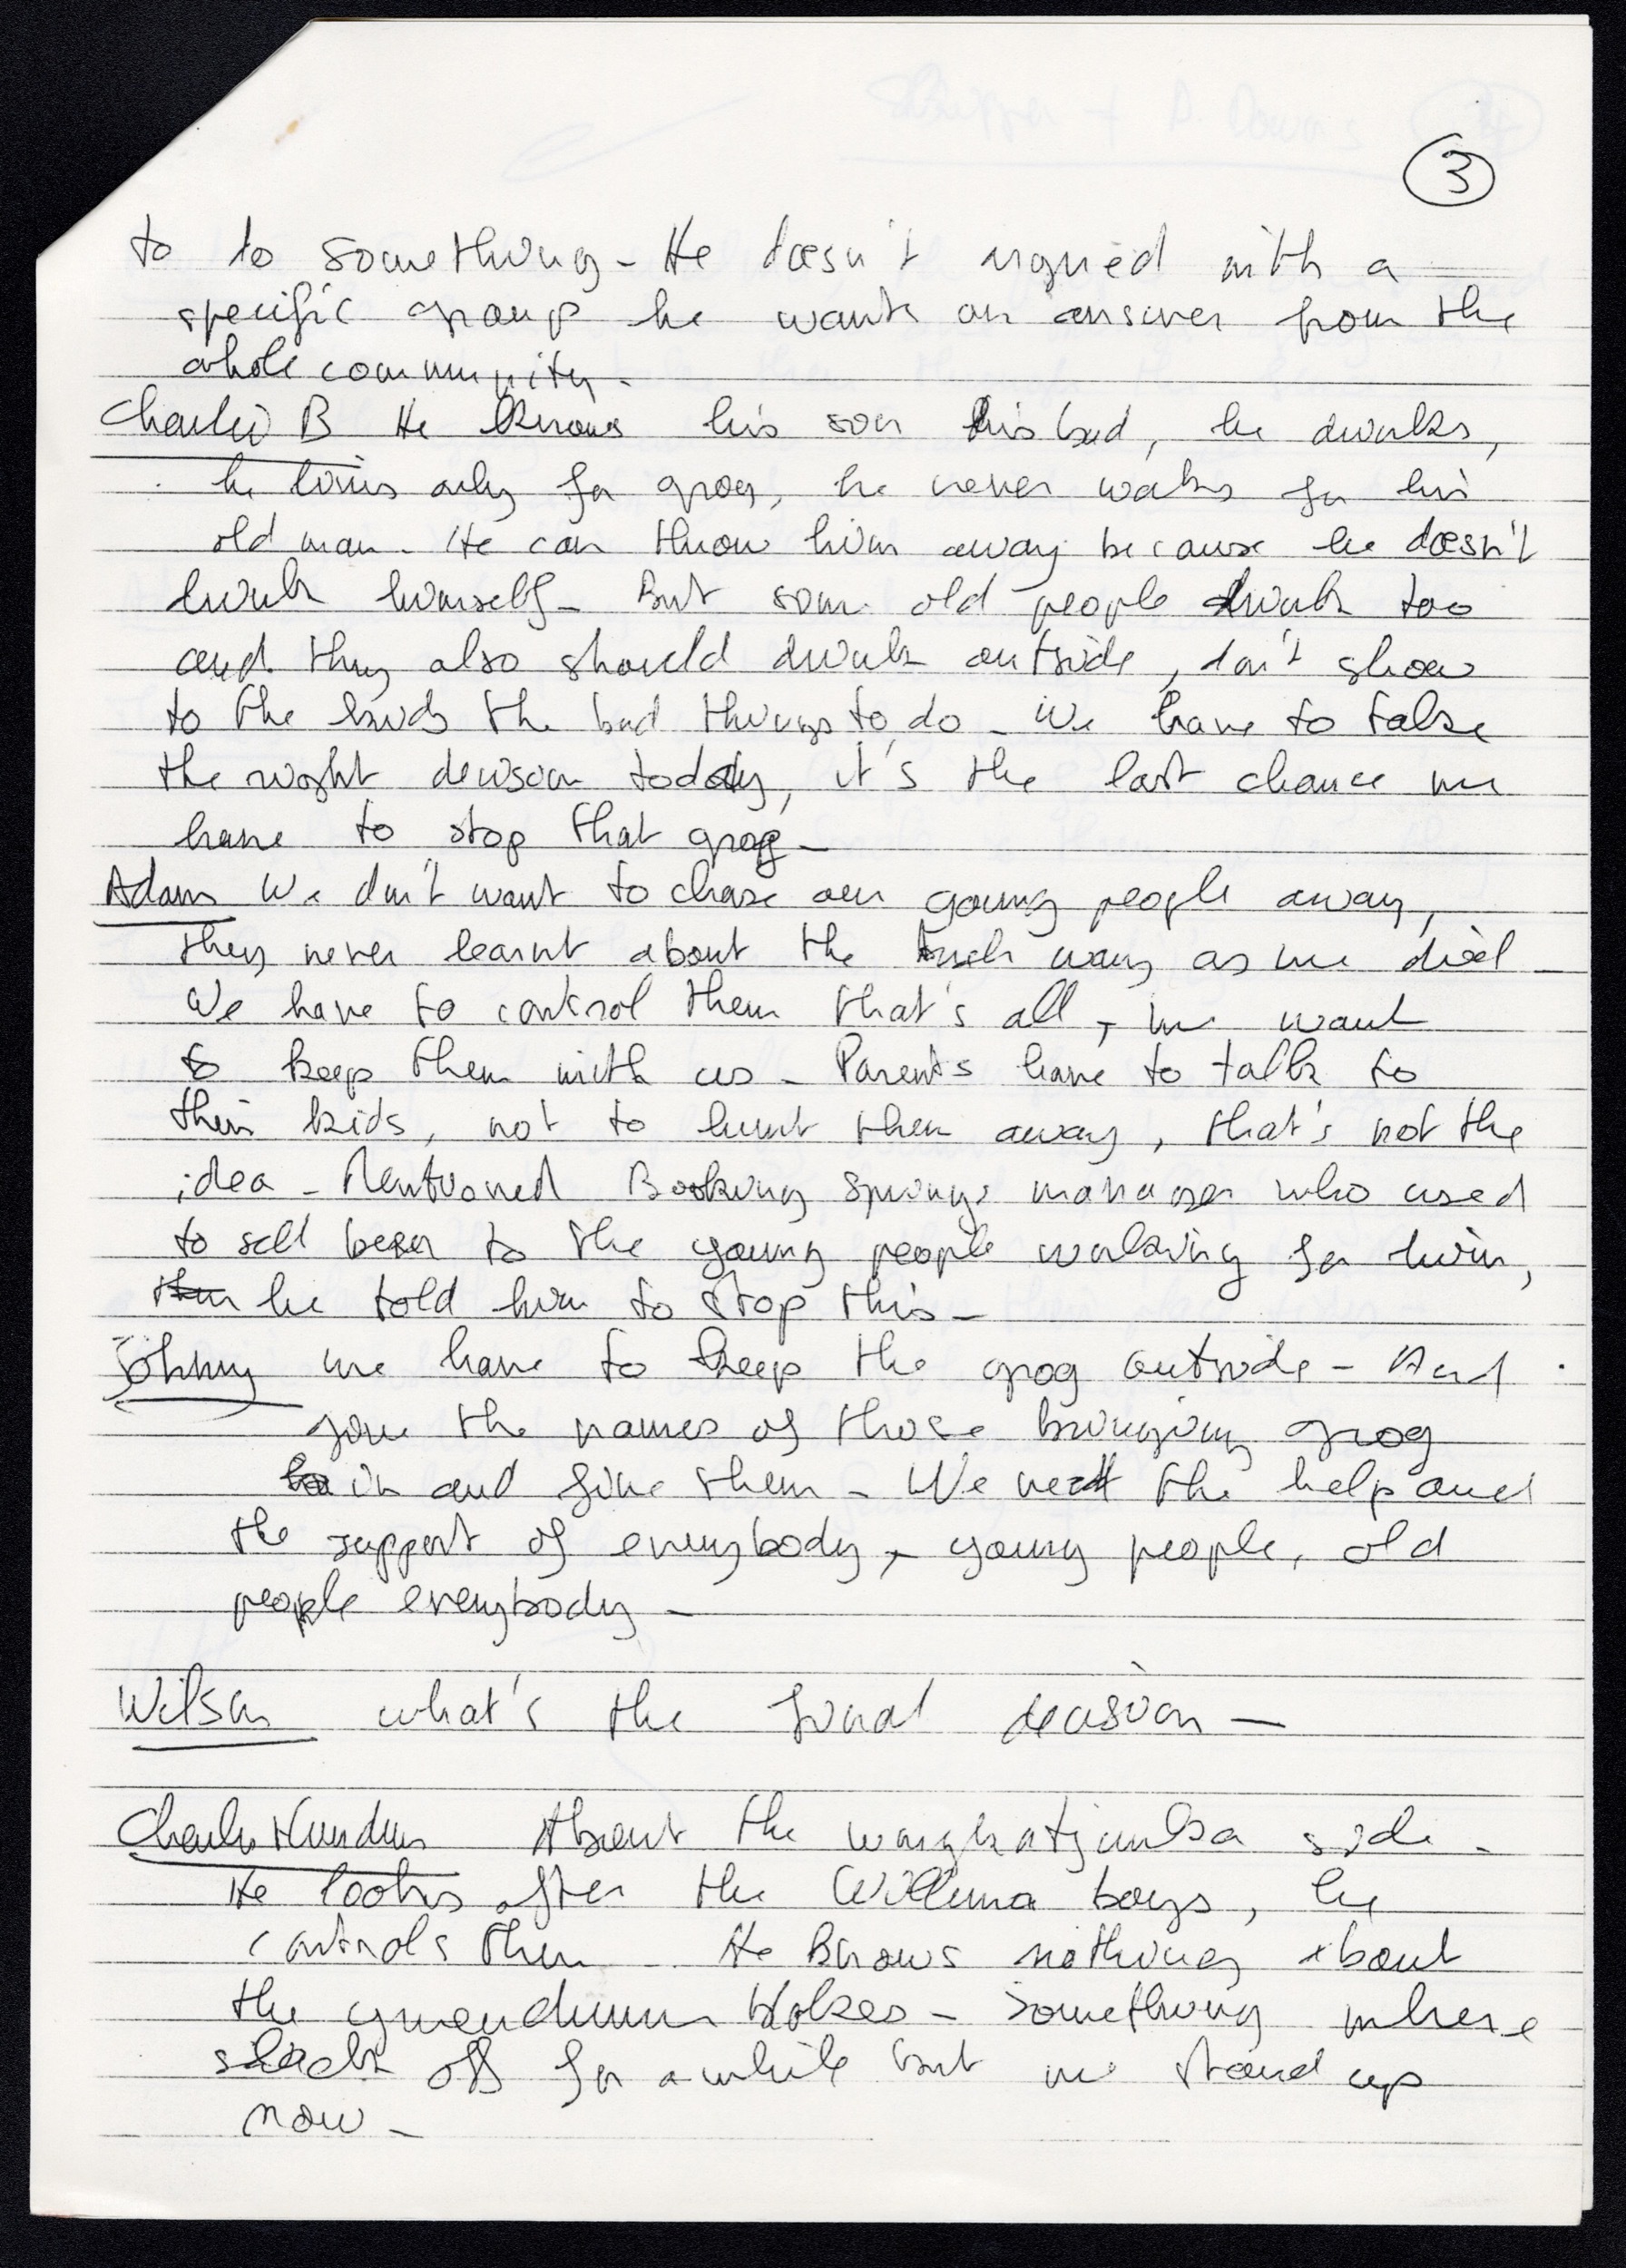 3
to do something - He doesn't argued with a
specific group he wants an answer from the
whole community -
Charlie B He knows his son his bad, he drinks,
he lives only for grog, he never works for his
old man - He can throw him away because he doesn't
drink himself - But some old people drink too
and they also should drink outside, don't show
to the kids the bad things to do - We have to take
the right decision today, it's the last chance we
have to stop that grog -
Adam We don't want to chase our young people away,
they never learnt about the way as we did -
We have to control them that's all, we want
to keep them with us - Parents have to talk to
their kids, not to hunt them away, that's not the
idea - Mentioned Springs manager who used
to sell beer to the young people working for him,
he told him to stop this -
Johnny we have to keep the grog outside - And
give the names of those bringing grog
in and fine them - We need the help and
the support of everybody, young people, old
people everybody -
Wilson what's the final decision -
Charlie About the side -
He looks after the Willuna boys, he
controls them - He knows nothing about
the blokes - Something where
slack off for a while but we stand up
now -